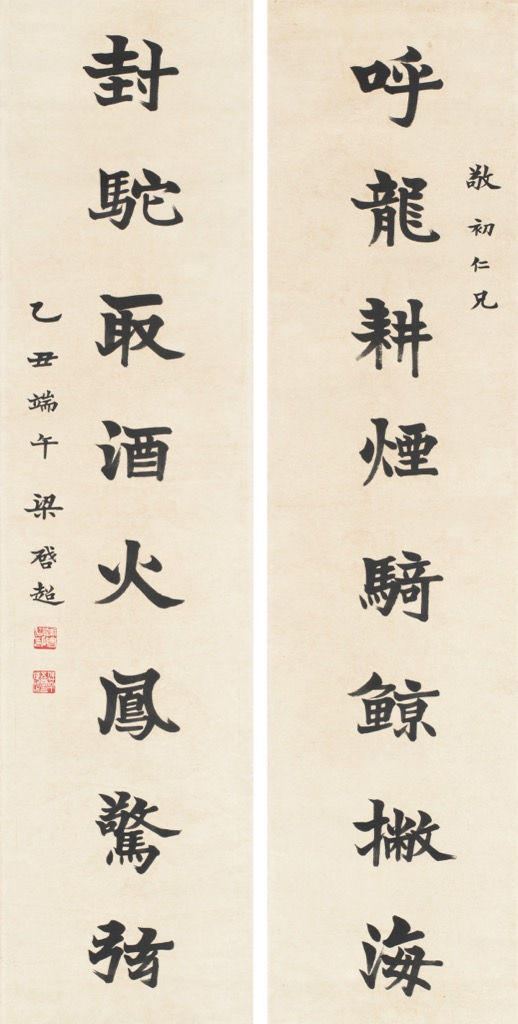 敬初仁兄
呼龍耕煙騎鯨撇海
封駝取酒火鳳驚弦
乙丑端午梁啓超